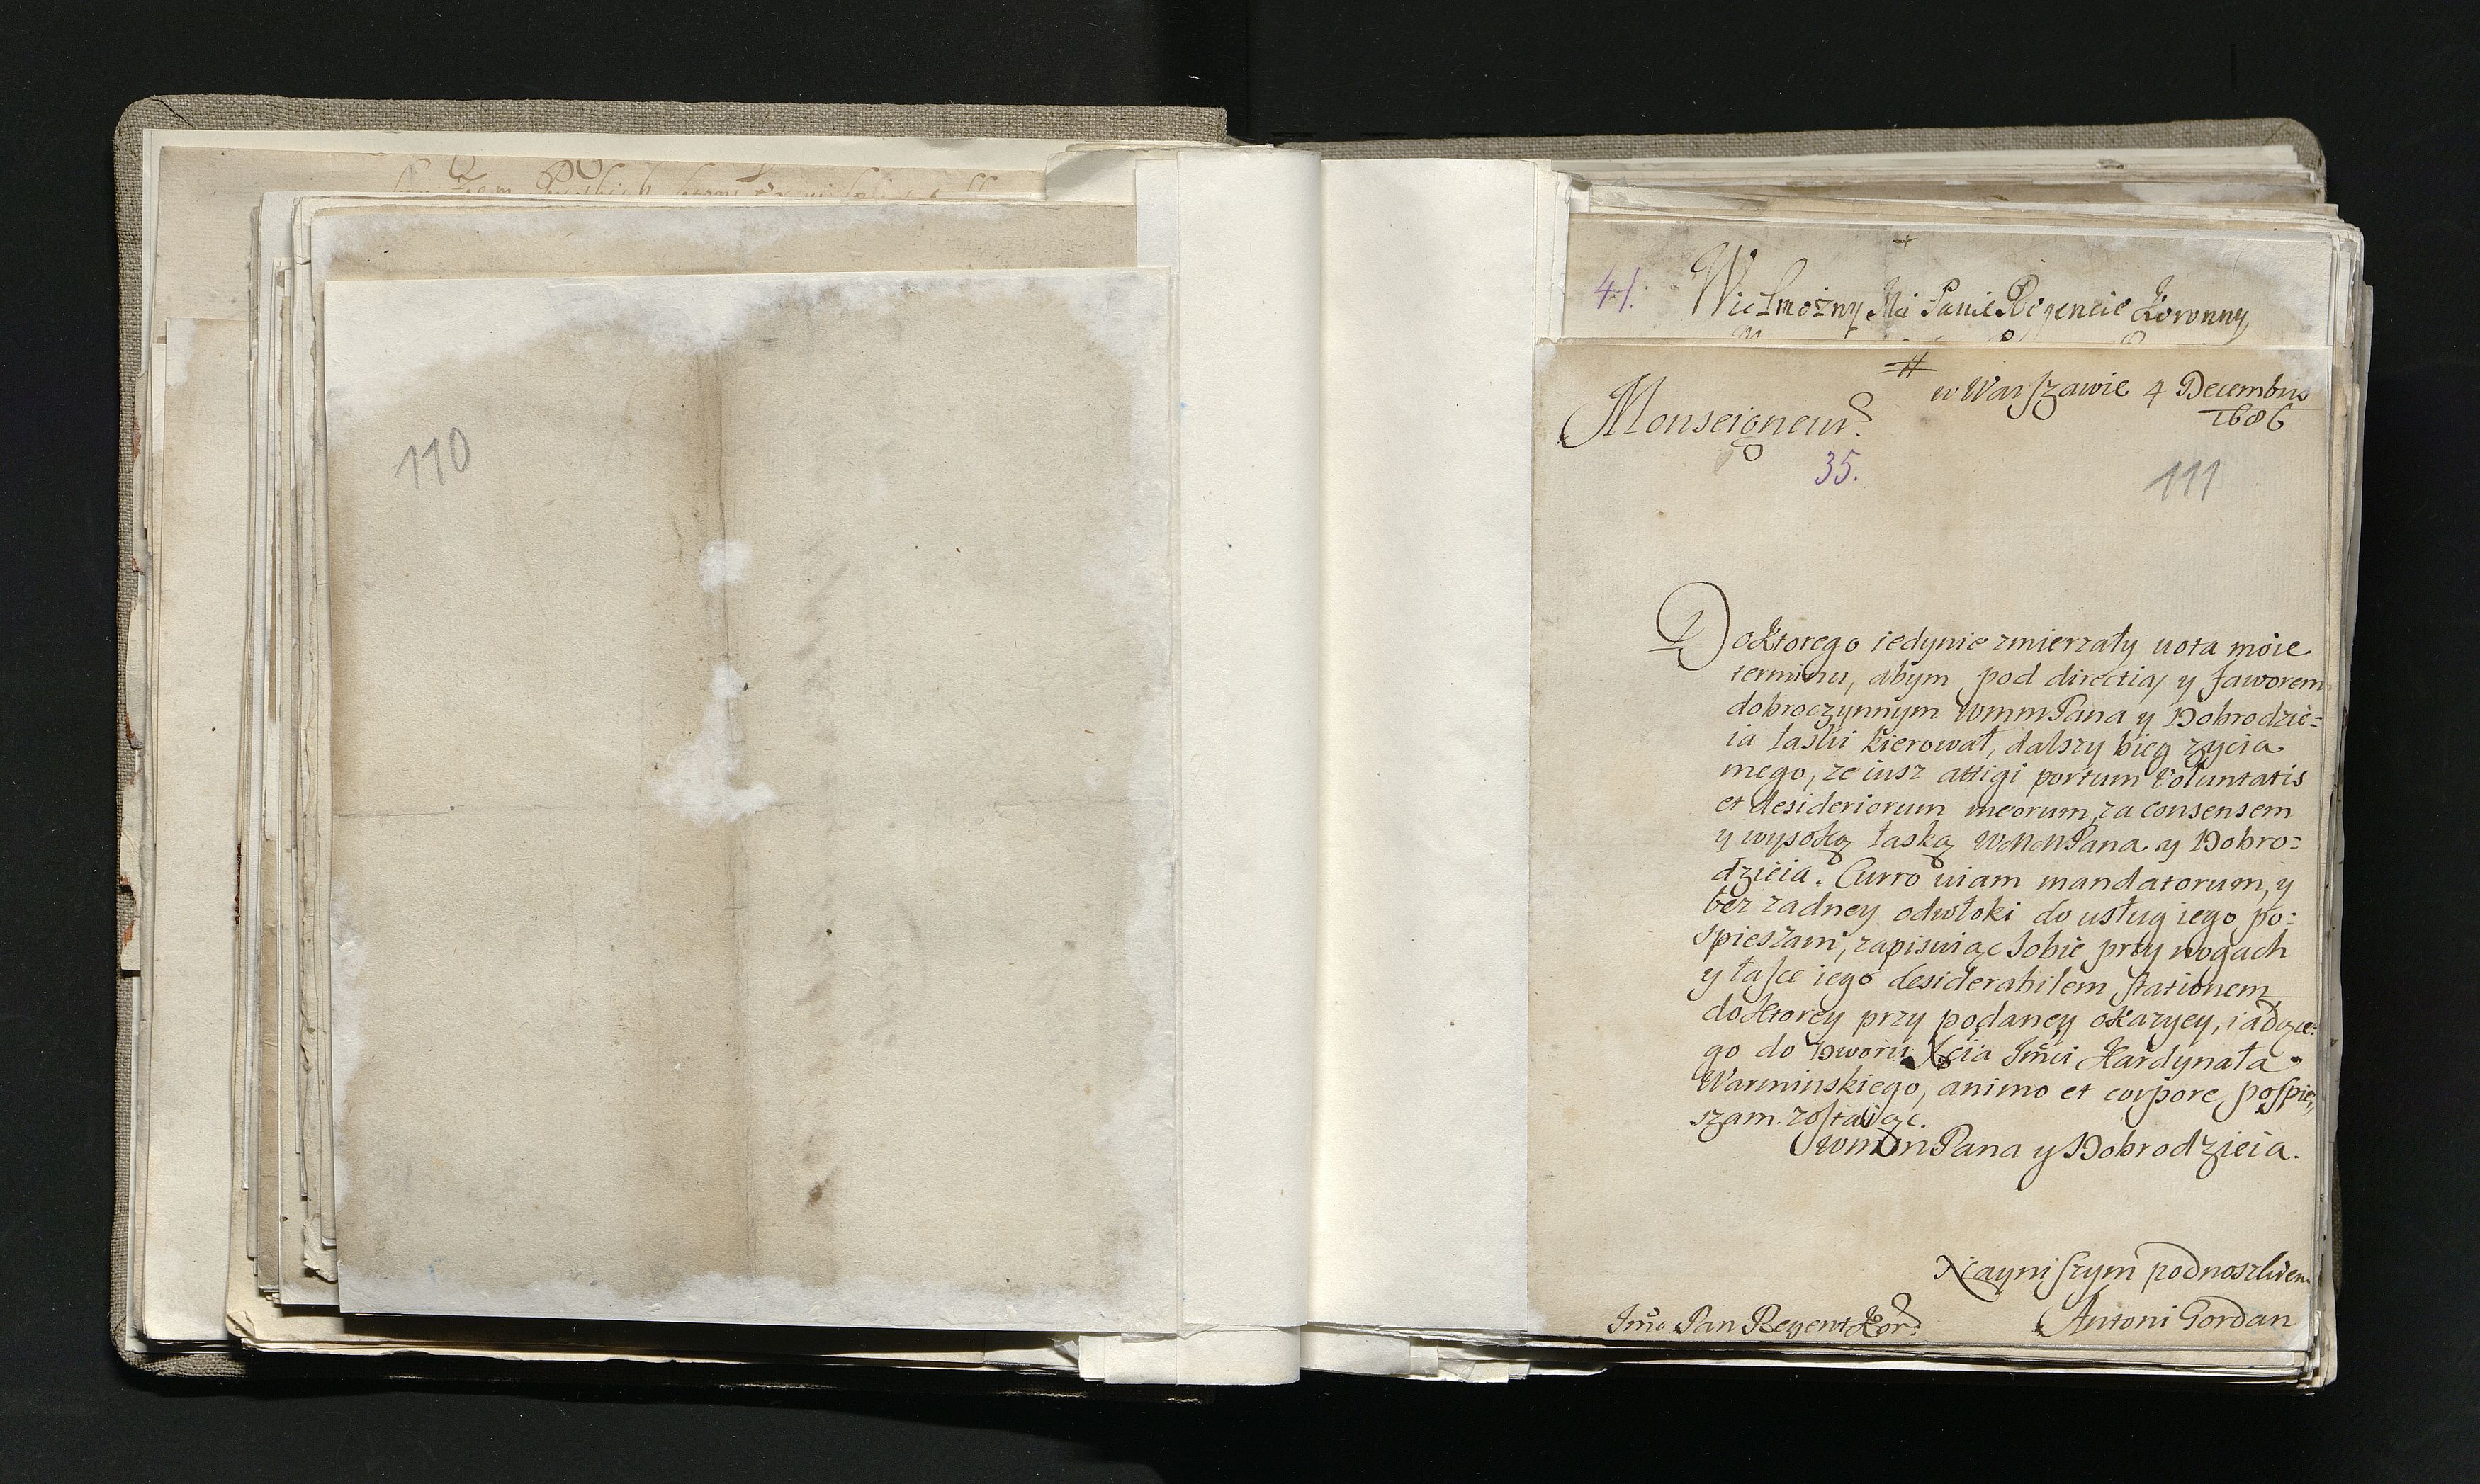 110
41.
Wielmożny Mci Panie Regencie Koronny
w Warszawie 4 Decembris
1686
Monseigneur
35.
111
Do Ktorego iedynie zmierzały uota moie
terminu, abym pod directią y faworem
dobroczynnym WmmPana y Dobrodzie=
ia łaski kierował, dalszy bieg zycia
mego, ze iusz attigi portum Voluntatis
et desideriorum meorum, za consensem
y wysoką łaską WMMPana y Dobro=
dzieia. Curro uiam mandatorum, y
bez zadney odwłoki do usług iego po=
spieszam, zapisuiąc sobie przy nogach
y łasce iego desiderabilem stationem
do Ktorey przy podaney okazyey, iadące=
go do Dworu Xcia Jmci Kardynała
Warminskiego, animo et corpore pospie,
szam. zostaiąc.
WmmPana y Dobrodzieia.
Nayniszym podnoszkiem
Antoni Gordan
Jmc Pan Regent Kor: